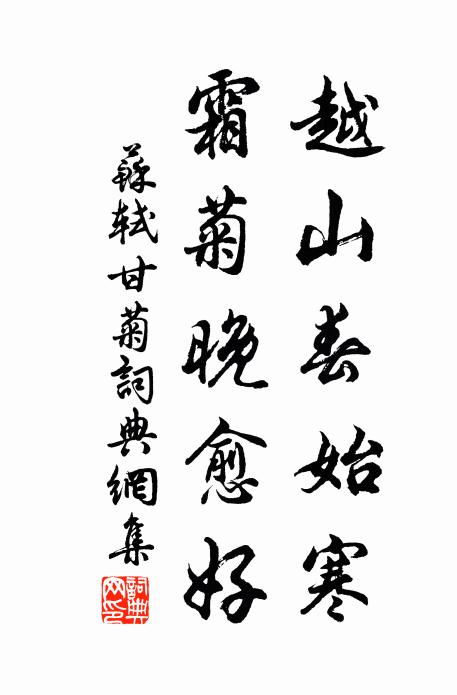 越山春始寒
霜菊晚愈好
蘇軾甘菊詞典網集
詞典網印